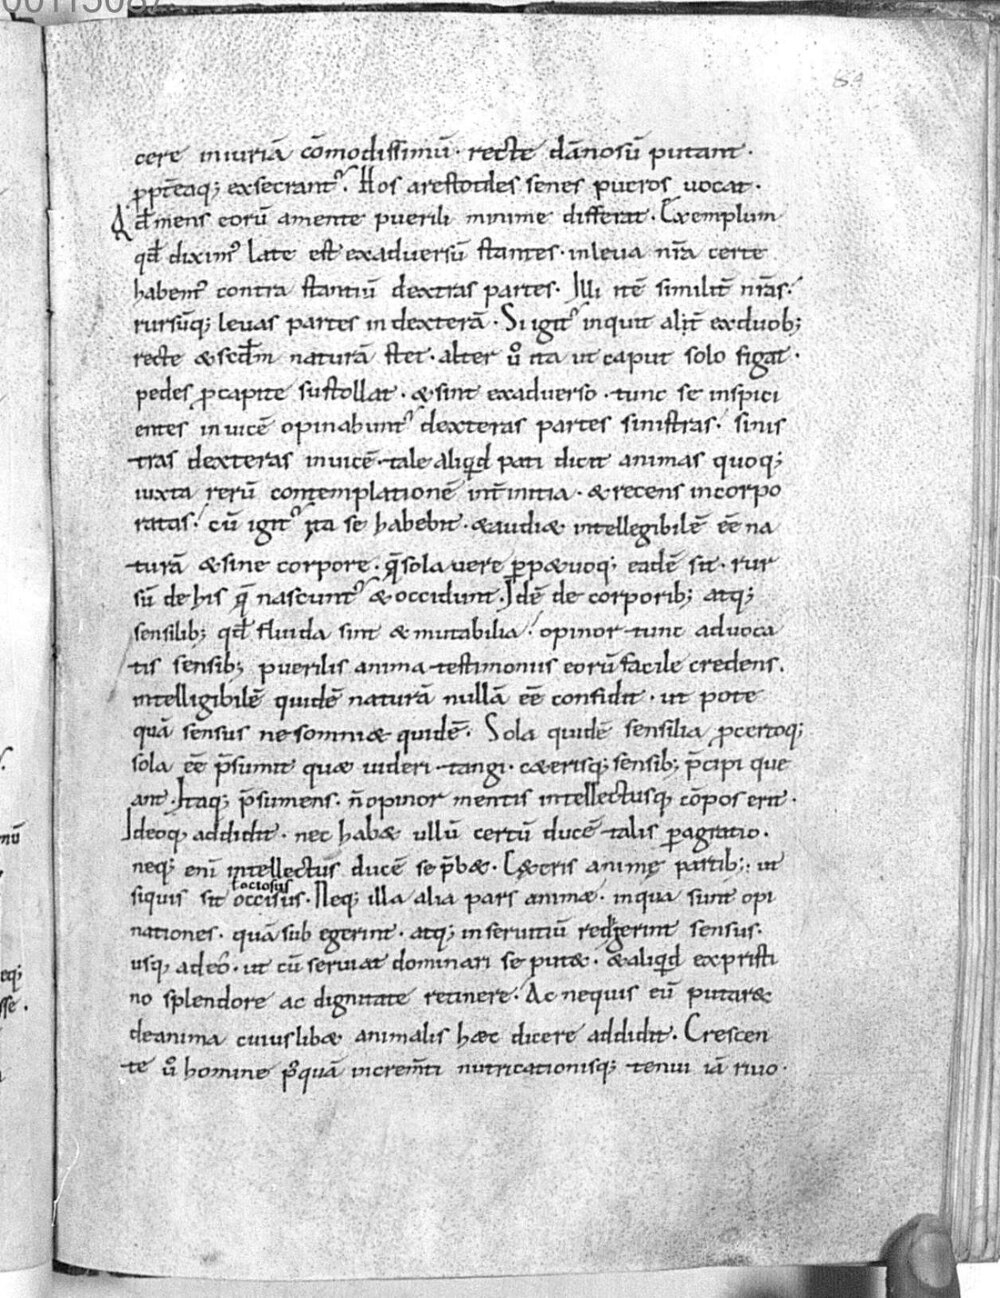 00115087
84
cere iniuriā cōmodissimū· recte dānosū putant·
ꝓpt̄eaq; exsecrant᷑. Hos arestotiles senes pueros uocat·
Qd̄ mens eorū amente puerili minime differat· Exemplum
qd̄ diximꝰ late est exaduersū stantes· inleua nr̄a certe
habemꝰ contra stantiū dextras partes· Illi itē similit̄ nr̄as·
rursūq; leuas partes indexterā· Si igit᷑ inquit alit̄ exduob;
recte & scd̄m naturā stet· alter ů ita ut caput solo figat·
pedes ꝓcapite sustollat· & sint exaduerso· tunc se inspici
entes inuicē opinabunt᷑ dexteras partes sinistras· sinis
tras dexteras inuicē· tale aliqd pati dicit animas quoq;
iuxta rerū contemplationē int̄ initia· & recens incorpo
ratas· cū igit᷑ ita se habebit· & audi& intellegibilē ēē na
turā & sine corpore· q̄ sola uere ꝑp&uoq; eadē sit· rur
sū de his q̄ nascunt᷑ & occidunt· Idē de corporib; atq;
sensilib; qd̄ fluida sint & mutabilia· opinor tunc aduoca
tis sensib; puerilis anima testimoniis eorū facile credens·
intelligibilē quidē naturā nullā ēē confidit· ut pote
quā sensus ne somni& quidē· Sola quidē sensilia ꝓcertoq;
sola ēē p̄sumit quæ uideri· tangi· c&erisq; sensib; p̄cipi que
ant· Itaq; p̄sumens· n̄ opinor mentis intellectusq; cōpos erit·
Ideoq; addidit· nec hab& ullū certū ducē talis ꝑagratio·
neq; enī intellectūs ducē se p̄b&· C&eris animę partib; ut
toctosus
siquis sit occisus· Neq; illa alia pars animæ· inqua sunt opi
nationes· quā sub egerint· atq; inseruitiū redigerint sensus·
usq; adeo· ut cū seruiat dominari se put&· & aliqd ex pristi
no splendore ac dignitate retinere· Ac nequis eū putar&
deanima cuiuslib& animalis hæc dicere addidit· Crescen
te ů homine p̄quā increm̄ti nutricationisq; tenui iā riuo·